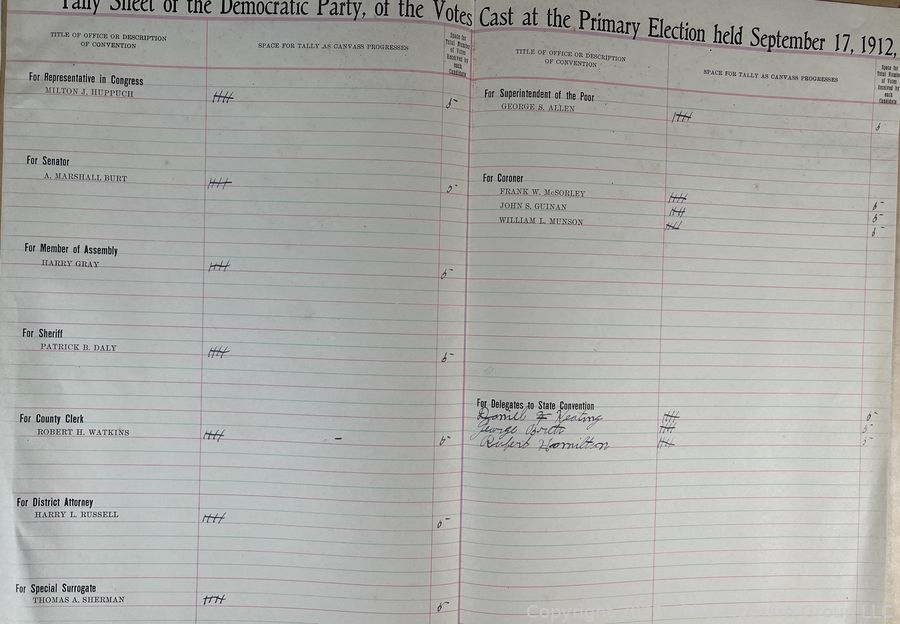 Tally Sheet of the Democratic Party, of the Votes Cast at the Primary Election held September 17, 1912,
TITLE OF OFFICE OR DESCRIPTION
OF CONVENTION
SPACE FOR TALLY AS CANVASS PROGRESSES
Space for
Total Number
of Votes
Received by
each
Candidate
For Representative in Congress
MILTON J. HUPPUCH 5
For Senator
A. MARSHALL BURT 5
For Member of Assembly
HARRY GRAY 5
For Sheriff
PATRICK B. DALY 5
For County Clerk
ROBERT H. WATKINS 5
For District Attorney
HARRY L. RUSSELL 5
For Special Surrogate
THOMAS A. SHERMAN 5
TITLE OF OFFICE OR DESCRIPTION
OF CONVENTION
SPACE FOR TALLY AS CANVASS PROGRESSES
Space for
Total Number
of Votes
Received by
each
Candidate
For Superintendent of the Poor
GEORGE S. ALLEN 5
For Coroner
FRANK W. McSORLEY 5
JOHN S. GUINAN 5
WILLIAM L. MUNSON 5
For Delegates to State Convention
Keating 5
George 5
Hamilton 5
Copyright LLC